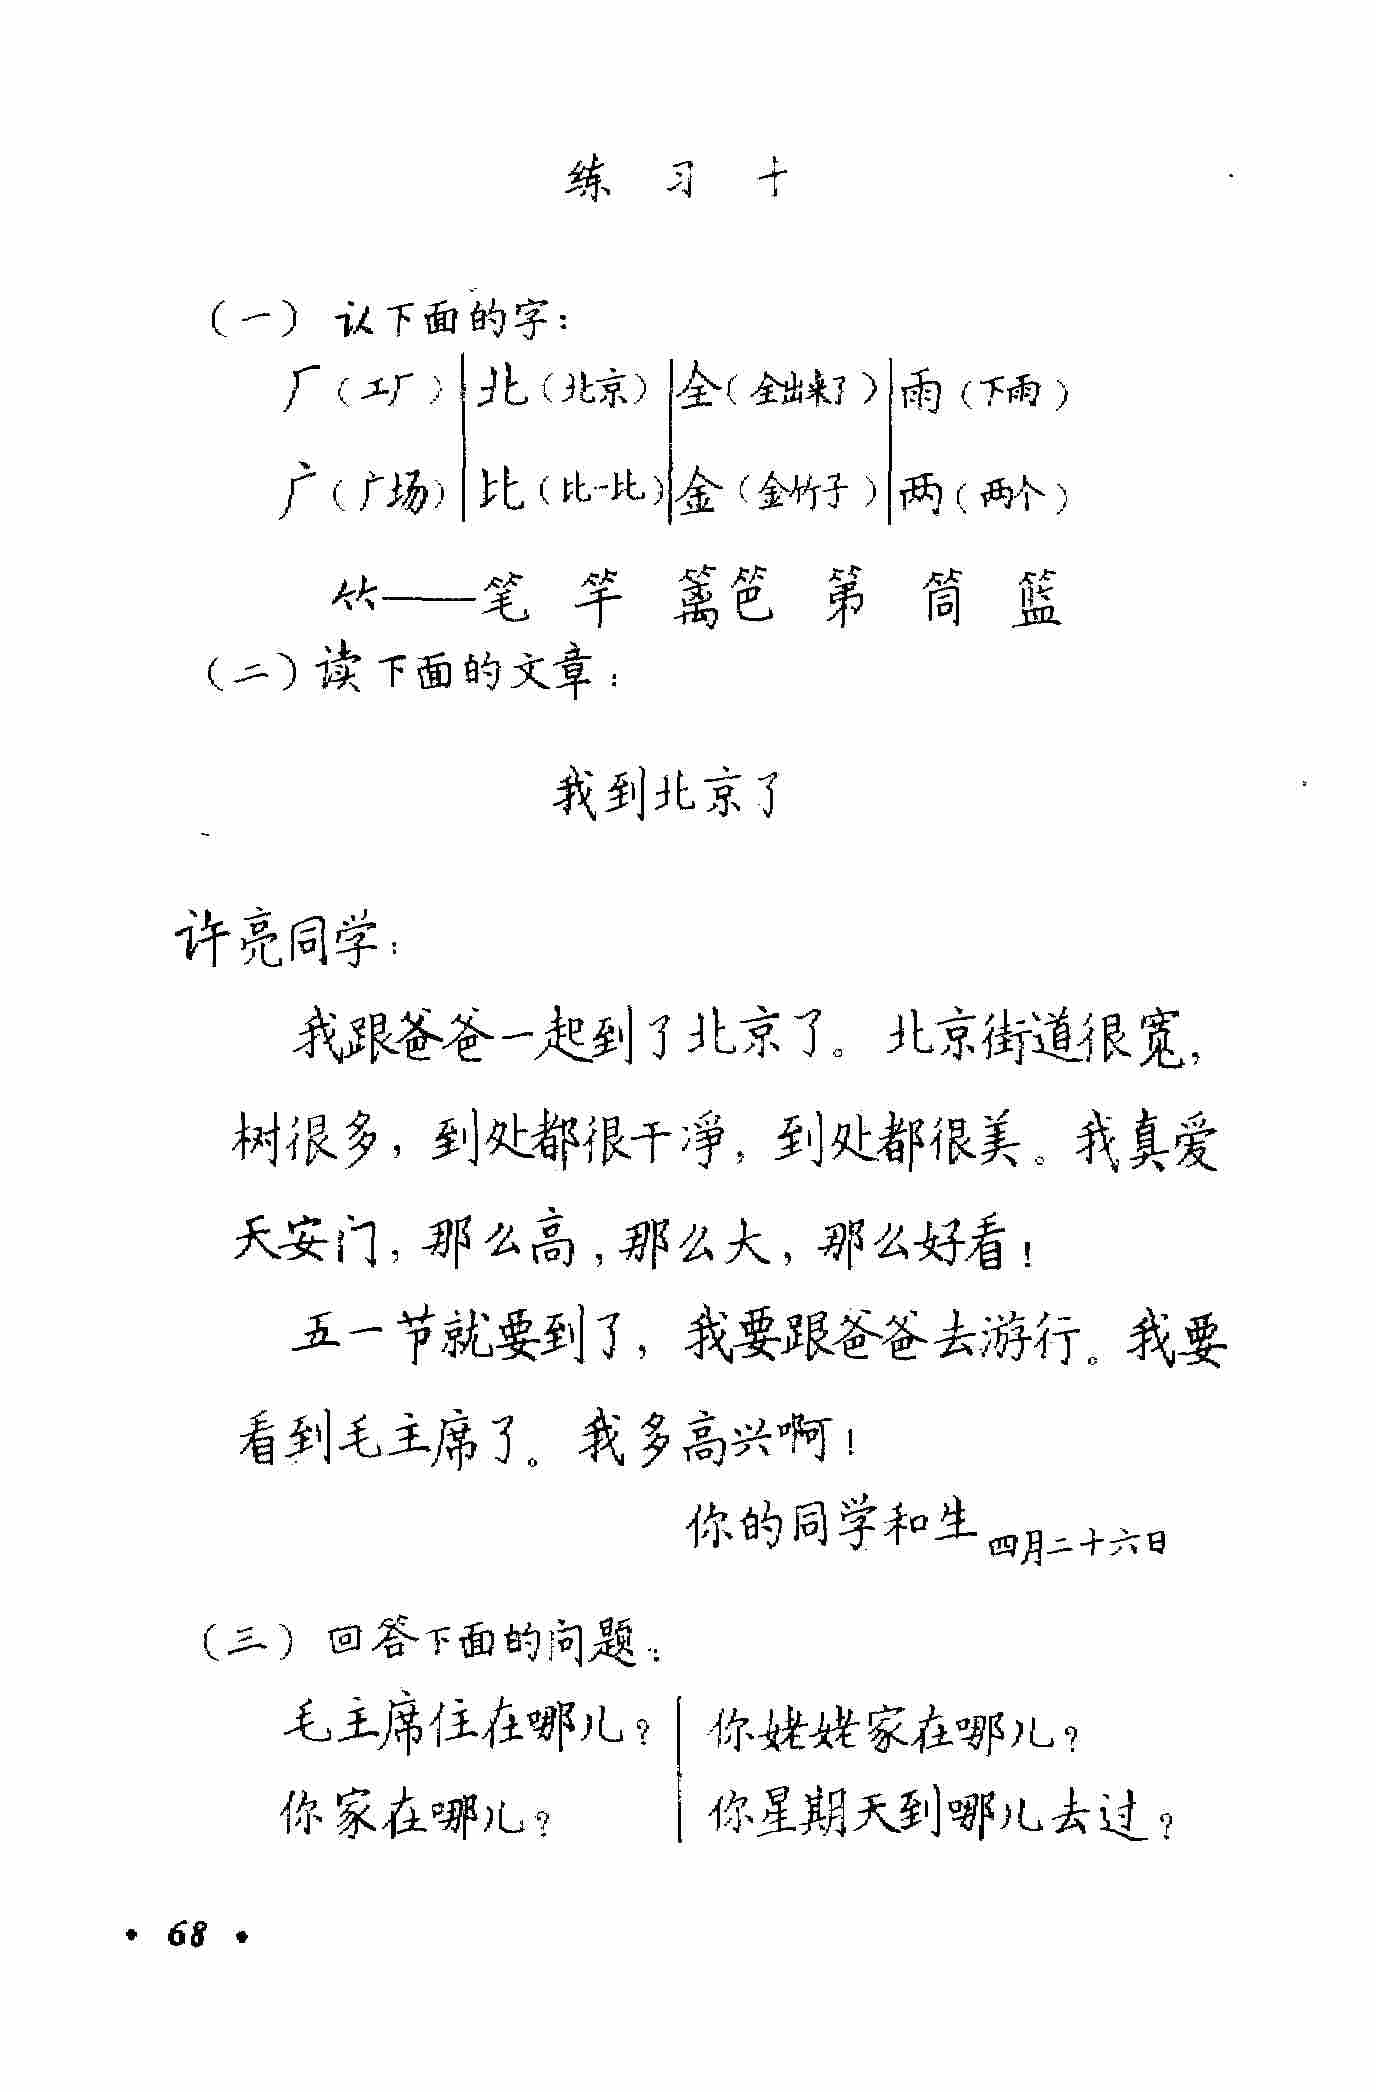 练 习 十
（一） 认下面的字：
厂（工厂）｜北（北京）｜全（全出来了）｜雨（下雨）
广（广场）｜比（比一比）｜金（金竹子）｜两（两个）
⺮——笔 竿 篱笆 第 筒 篮
（二）读下面的文章：
我到北京了
许亮同学：
我跟爸爸一起到了北京了。北京街道很宽，
树很多，到处都很干净，到处都很美。我真爱
天安门，那么高，那么大，那么好看！
五一节就要到了，我要跟爸爸去游行。我要
看到毛主席了。我多高兴啊！
你的同学和生 四月二十六日
（三） 回答下面的问题：
毛主席住在哪儿？｜你姥姥家在哪儿？
你家在哪儿？｜你星期天到哪儿去过？
· 68 ·